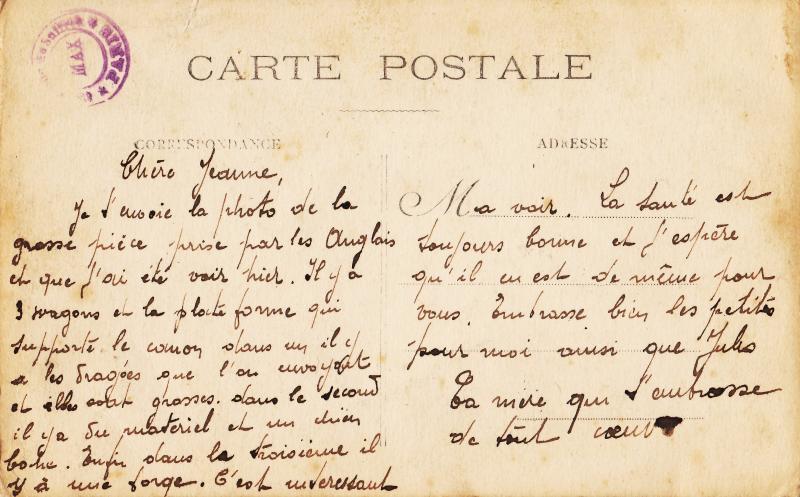 MAX
PARIS
CARTE POSTALE
CORRESPONDANCE
Chère Jeanne,
Je t'envoie la photo de la
grosse pièce prise par les Anglais
et que j'ai été voir hier. Il y a
3 wagons et la plate forme qui
supporte le canon dans un il y
a les dragées que l'on envoyait
et elles etait grosses. dans le second
il y a du materiel et un chien
boche. Enfin dans la troisième il
y à une forge. C'est interessant
ADRESSE
M a voir. La santé est
toujours bonne et j'espère
qu'il en est de même pour
vous. Embrasse bien les petites
pour moi ainsi que Jules
Ta mère qui t'embrasse
de tout cœur